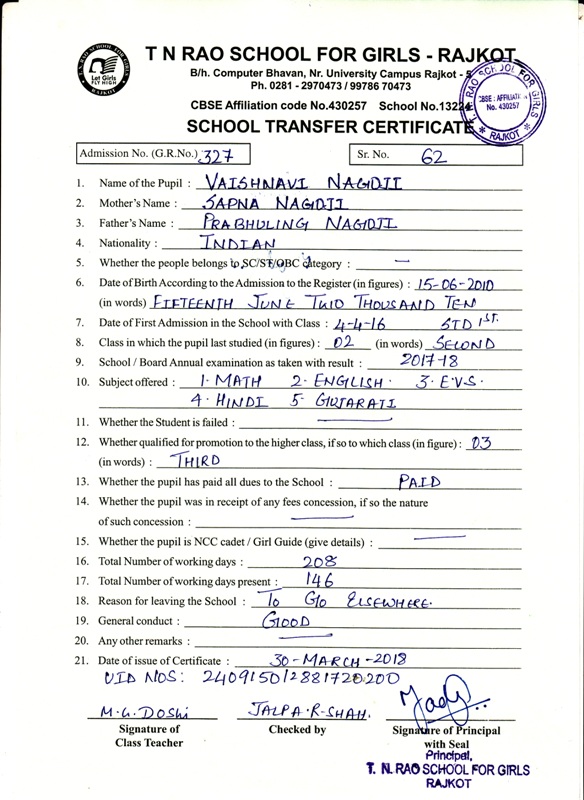 T N RAO SCHOOL FOR GIRLS - RAJKOT
Let Girls
FLY HIGH
RAJKOT
B/h. Computer Bhavan, Nr. University Campus Rajkot - 5
Ph. 0281 - 2970473 / 99786 70473
CBSE Affiliation code No.430257 School No.13224
T. N. RAO SCHOOL FOR GIRLS
CBSE : AFFILIATION
No. 430257
RAJKOT
SCHOOL TRANSFER CERTIFICATE
Admission No. (G.R.No.) 327 Sr. No. 62
1. Name of the Pupil : VAISHNAVI NAGOJI
2. Mother's Name : SAPNA NAGOJI
3. Father's Name : PRABHULING NAGOJI
4. Nationality : INDIAN
5. Whether the people belongs to SC/ST/OBC category : —
6. Date of Birth According to the Admission to the Register (in figures) : 15-06-2010
(in words) FIFTEENTH JUNE TWO THOUSAND TEN
7. Date of First Admission in the School with Class : 4-4-16 STD 1st.
8. Class in which the pupil last studied (in figures) : 02 (in words) SECOND
9. School / Board Annual examination as taken with result : 2017-18
10. Subject offered : 1. MATH 2. ENGLISH. 3. E.V.S.
4. HINDI 5. GUJARATI
11. Whether the Student is failed : —
12. Whether qualified for promotion to the higher class, if so to which class (in figure) : 03
(in words) : THIRD
13. Whether the pupil has paid all dues to the School : PAID
14. Whether the pupil was in receipt of any fees concession, if so the nature
of such concession : —
15. Whether the pupil is NCC cadet / Girl Guide (give details) : —
16. Total Number of working days : 208
17. Total Number of working days present : 146
18. Reason for leaving the School : TO GO ELSEWHERE.
19. General conduct : GOOD
20. Any other remarks : —
21. Date of issue of Certificate : 30-MARCH-2018
UID NOS: 240915012881720200
M.G.DOSHI JALPA.R.SHAH.
Signature of Class Teacher Checked by Signature of Principal with Seal
Principal,
T. N. RAO SCHOOL FOR GIRLS
RAJKOT